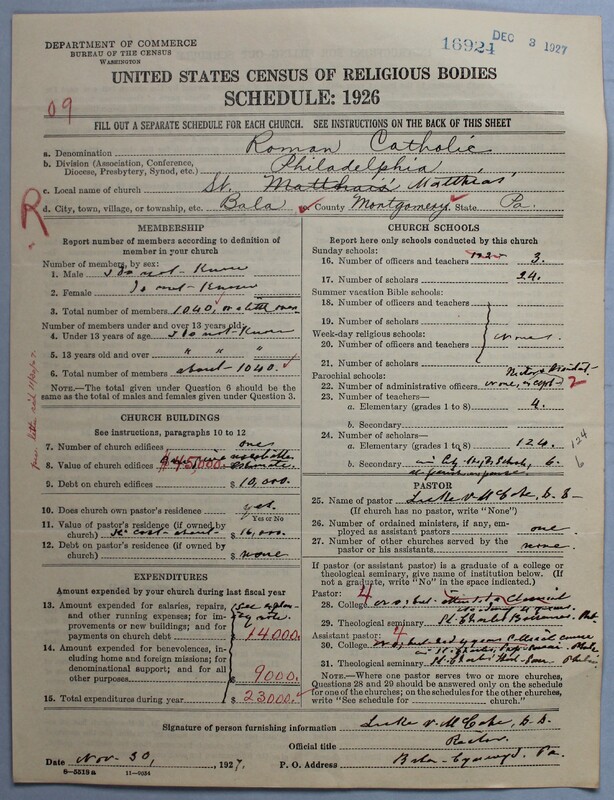 DEPARTMENT OF COMMERCE
BUREAU OF THE CENSUS
WASHINGTON
16924 DEC 3 1927
UNITED STATES CENSUS OF RELIGIOUS BODIES
SCHEDULE: 1926
09
FILL OUT A SEPARATE SCHEDULE FOR EACH CHURCH. SEE INSTRUCTIONS ON THE BACK OF THIS SHEET
a. Denomination Roman Catholic
b. Division (Association, Conference, Diocese, Presbytery, Synod, etc.) Philadelphia
c. Local name of church St. Matthias
d. City, town, village, or township, etc. Bala e. County Montgomery State Pa.
R
MEMBERSHIP
Report number of members according to definition of
member in your church
Number of members, by sex:
1. Male I do not know
2. Female Do not know
3. Total number of members 1040, or a little over
Number of members under and over 13 years old:
4. Under 13 years of age I do not know
5. 13 years old and over " " "
6. Total number of members about 1040.
NOTE.—The total given under Question 6 should be the
same as the total of males and females given under Question 3.
CHURCH BUILDINGS
See instructions, paragraphs 10 to 12
7. Number of church edifices one
8. Value of church edifices $45,000. estimate.
9. Debt on church edifices $10,000.
10. Does church own pastor's residence yes.
Yes or No
11. Value of pastor's residence (if owned by
church) It cost about $16,000.
12. Debt on pastor's residence (if owned by
church) $ none
EXPENDITURES
Amount expended by your church during last fiscal year
13. Amount expended for salaries, repairs,
and other running expenses; for im-
provements or new buildings; and for
payments on church debt $ 14000.
14. Amount expended for benevolences,
including home and foreign missions; for
denominational support; and for all
other purposes $ 9000.
15. Total expenditures during year $ 23000.
CHURCH SCHOOLS
Report here only schools conducted by this church
Sunday schools:
16. Number of officers and teachers 3.
17. Number of scholars
Summer vacation Bible schools:
18. Number of officers and teachers
19. Number of scholars
Week-day religious schools: none.
20. Number of officers and teachers
21. Number of scholars
Parochial schools:
22. Number of administrative officers none, except 2
23. Number of teachers—
a. Elementary (grades 1 to 8) 4.
b. Secondary
24. Number of scholars—
a. Elementary (grades 1 to 8) 124. 124
b. Secondary 6. 6
PASTOR
25. Name of pastor Luke V. McCabe, D. D.
(If church has no pastor, write "None")
26. Number of ordained ministers, if any, em-
ployed as assistant pastors one
27. Number of other churches served by the
pastor or his assistants none
If pastor (or assistant pastor) is a graduate of a college or
theological seminary, give name of institution below. (If
not a graduate, write "No" in the space indicated.)
Pastor: 4
28. College no, but
29. Theological seminary St. Charles Borromeo
Assistant pastor: 4
30. College no, but had 4 years Classical course
31. Theological seminary St. Charles
NOTE.—Where one pastor serves two or more churches,
Questions 28 and 29 should be answered only on the schedule
for one of the churches; on the schedules for the other churches,
write "See schedule for church."
Signature of person furnishing information Luke V. McCabe, D. D.
Official title Rector.
Date Nov. 30, 1927. P. O. Address Bala-Cynwyd, Pa.
8—5518a 11—9054